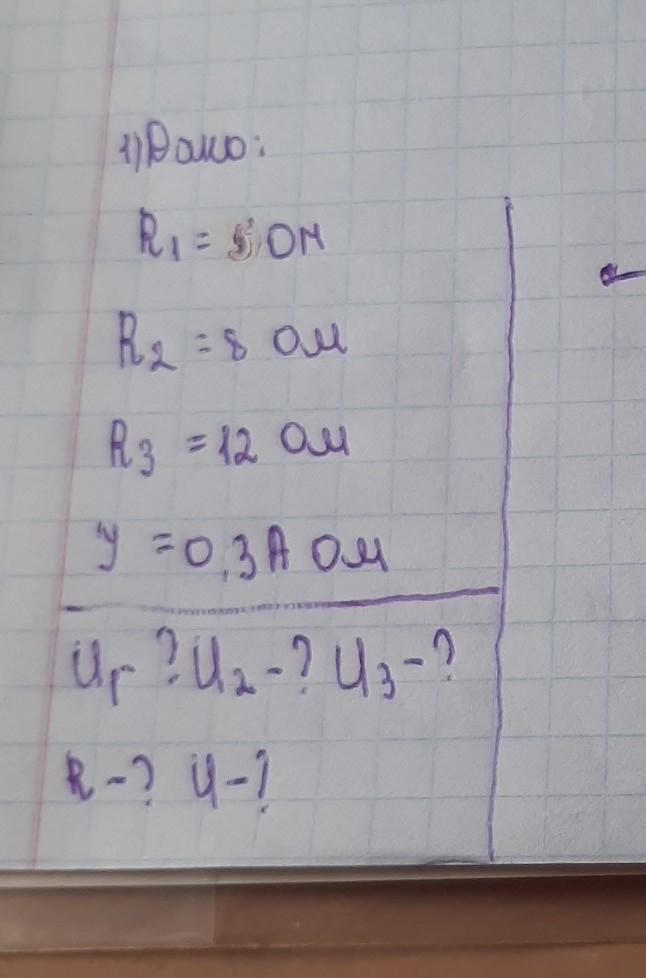 1) Дано:
R1 = 5 Ом
R2 = 8 Ом
R3 = 12 Ом
У = 0,3 А Ом
U1-? U2-? U3-?
R-? U-?